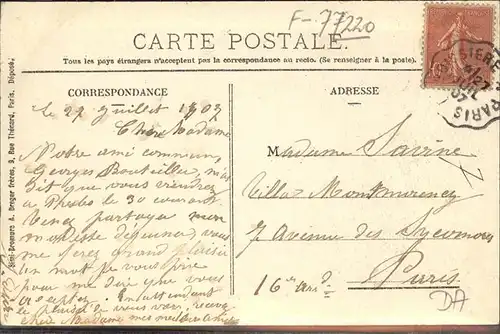 F-77220
CARTE POSTALE.
Tous les pays étrangers n'acceptent pas la correspondance au recto. (Se renseigner à la poste).
CORRESPONDANCE
ADRESSE
le 27 Juillet 1907
Chère Madame
Notre ami commun,
Georges
dit que vous viendrez
à Presles le 30 courant
partager mon
modeste déjeuner, vous
me ferez grand plaisir
un mot je vous prie
pour me dire que vous
acceptez. En attendant
le plaisir de vous voir, recevez
chère Madame mes meilleures
Madame Savine
Villa Montmorency
7 Avenue des Sycomores
16e arr.
Paris
DA
PARIS
Simi-Bromure A. Breger frères, 9, Rue Thénard, Paris. Déposé.